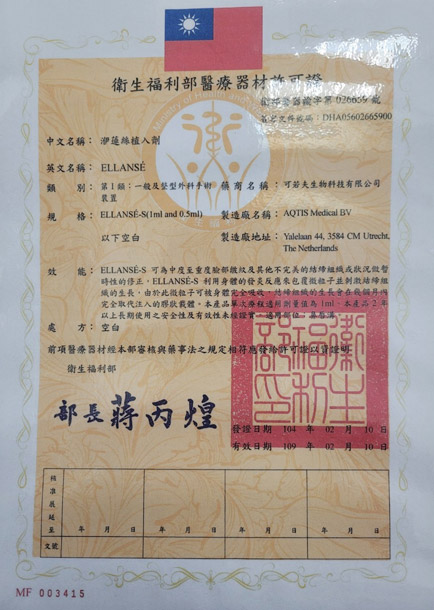 衛生福利部醫療器材許可證
衛部醫器輸字第 026659 號
簽審文件號碼：DHA05602665900
中文名稱：洢蓮絲植入劑
英文名稱：ELLANSÉ
類別：第I類：一般及整型外科手術裝置 藥商名稱：可若夫生物科技有限公司
規格：ELLANSÉ-S(1ml and 0.5ml) 製造廠名稱：AQTIS Medical BV
以下空白 製造廠地址：Yalelaan 44, 3584 CM Utrecht,
The Netherlands
效能：ELLANSÉ-S 可為中度至重度臉部皺紋及其他不完美的結締組織或狀況做暫
時性的修正，ELLANSÉ-S 利用身體的發炎反應來包覆微粒子並刺激結締組
織的生長，由於此微粒子可被身體完全吸收，結締組織的生長會在幾個月內
完全取代注入的膠狀載體。本產品單次療程注射劑量值為1ml，本產品2年
以上長期使用之安全性及有效性未經證實。適用部位：鼻唇溝。
處方：空白
前項醫療器材經本部審核與藥事法之規定相符應發給許可證以資證明
衛生福利部
部長 蔣丙煌
衛生福利部印
發證日期 104 年 02 月 10 日
有效日期 109 年 02 月 10 日
核准展延至 年 月 日 年 月 日 年 月 日 年 月 日
文號
MF 003415